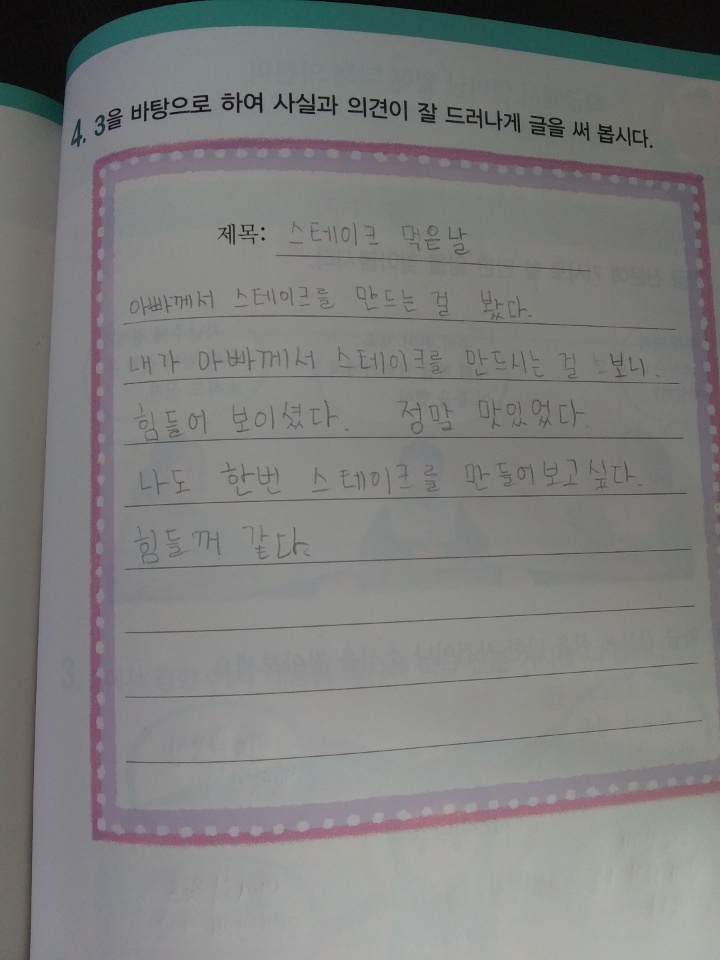 4. 3을 바탕으로 하여 사실과 의견이 잘 드러나게 글을 써 봅시다.
제목: 스테이크 먹은날
아빠께서 스테이크를 만드는 걸 봤다.
내가 아빠께서 스테이크를 만드시는 걸 보니.
힘들어 보이셨다. 정말 맛있었다.
나도 한번 스테이크를 만들어보고싶다.
힘들꺼 같다.